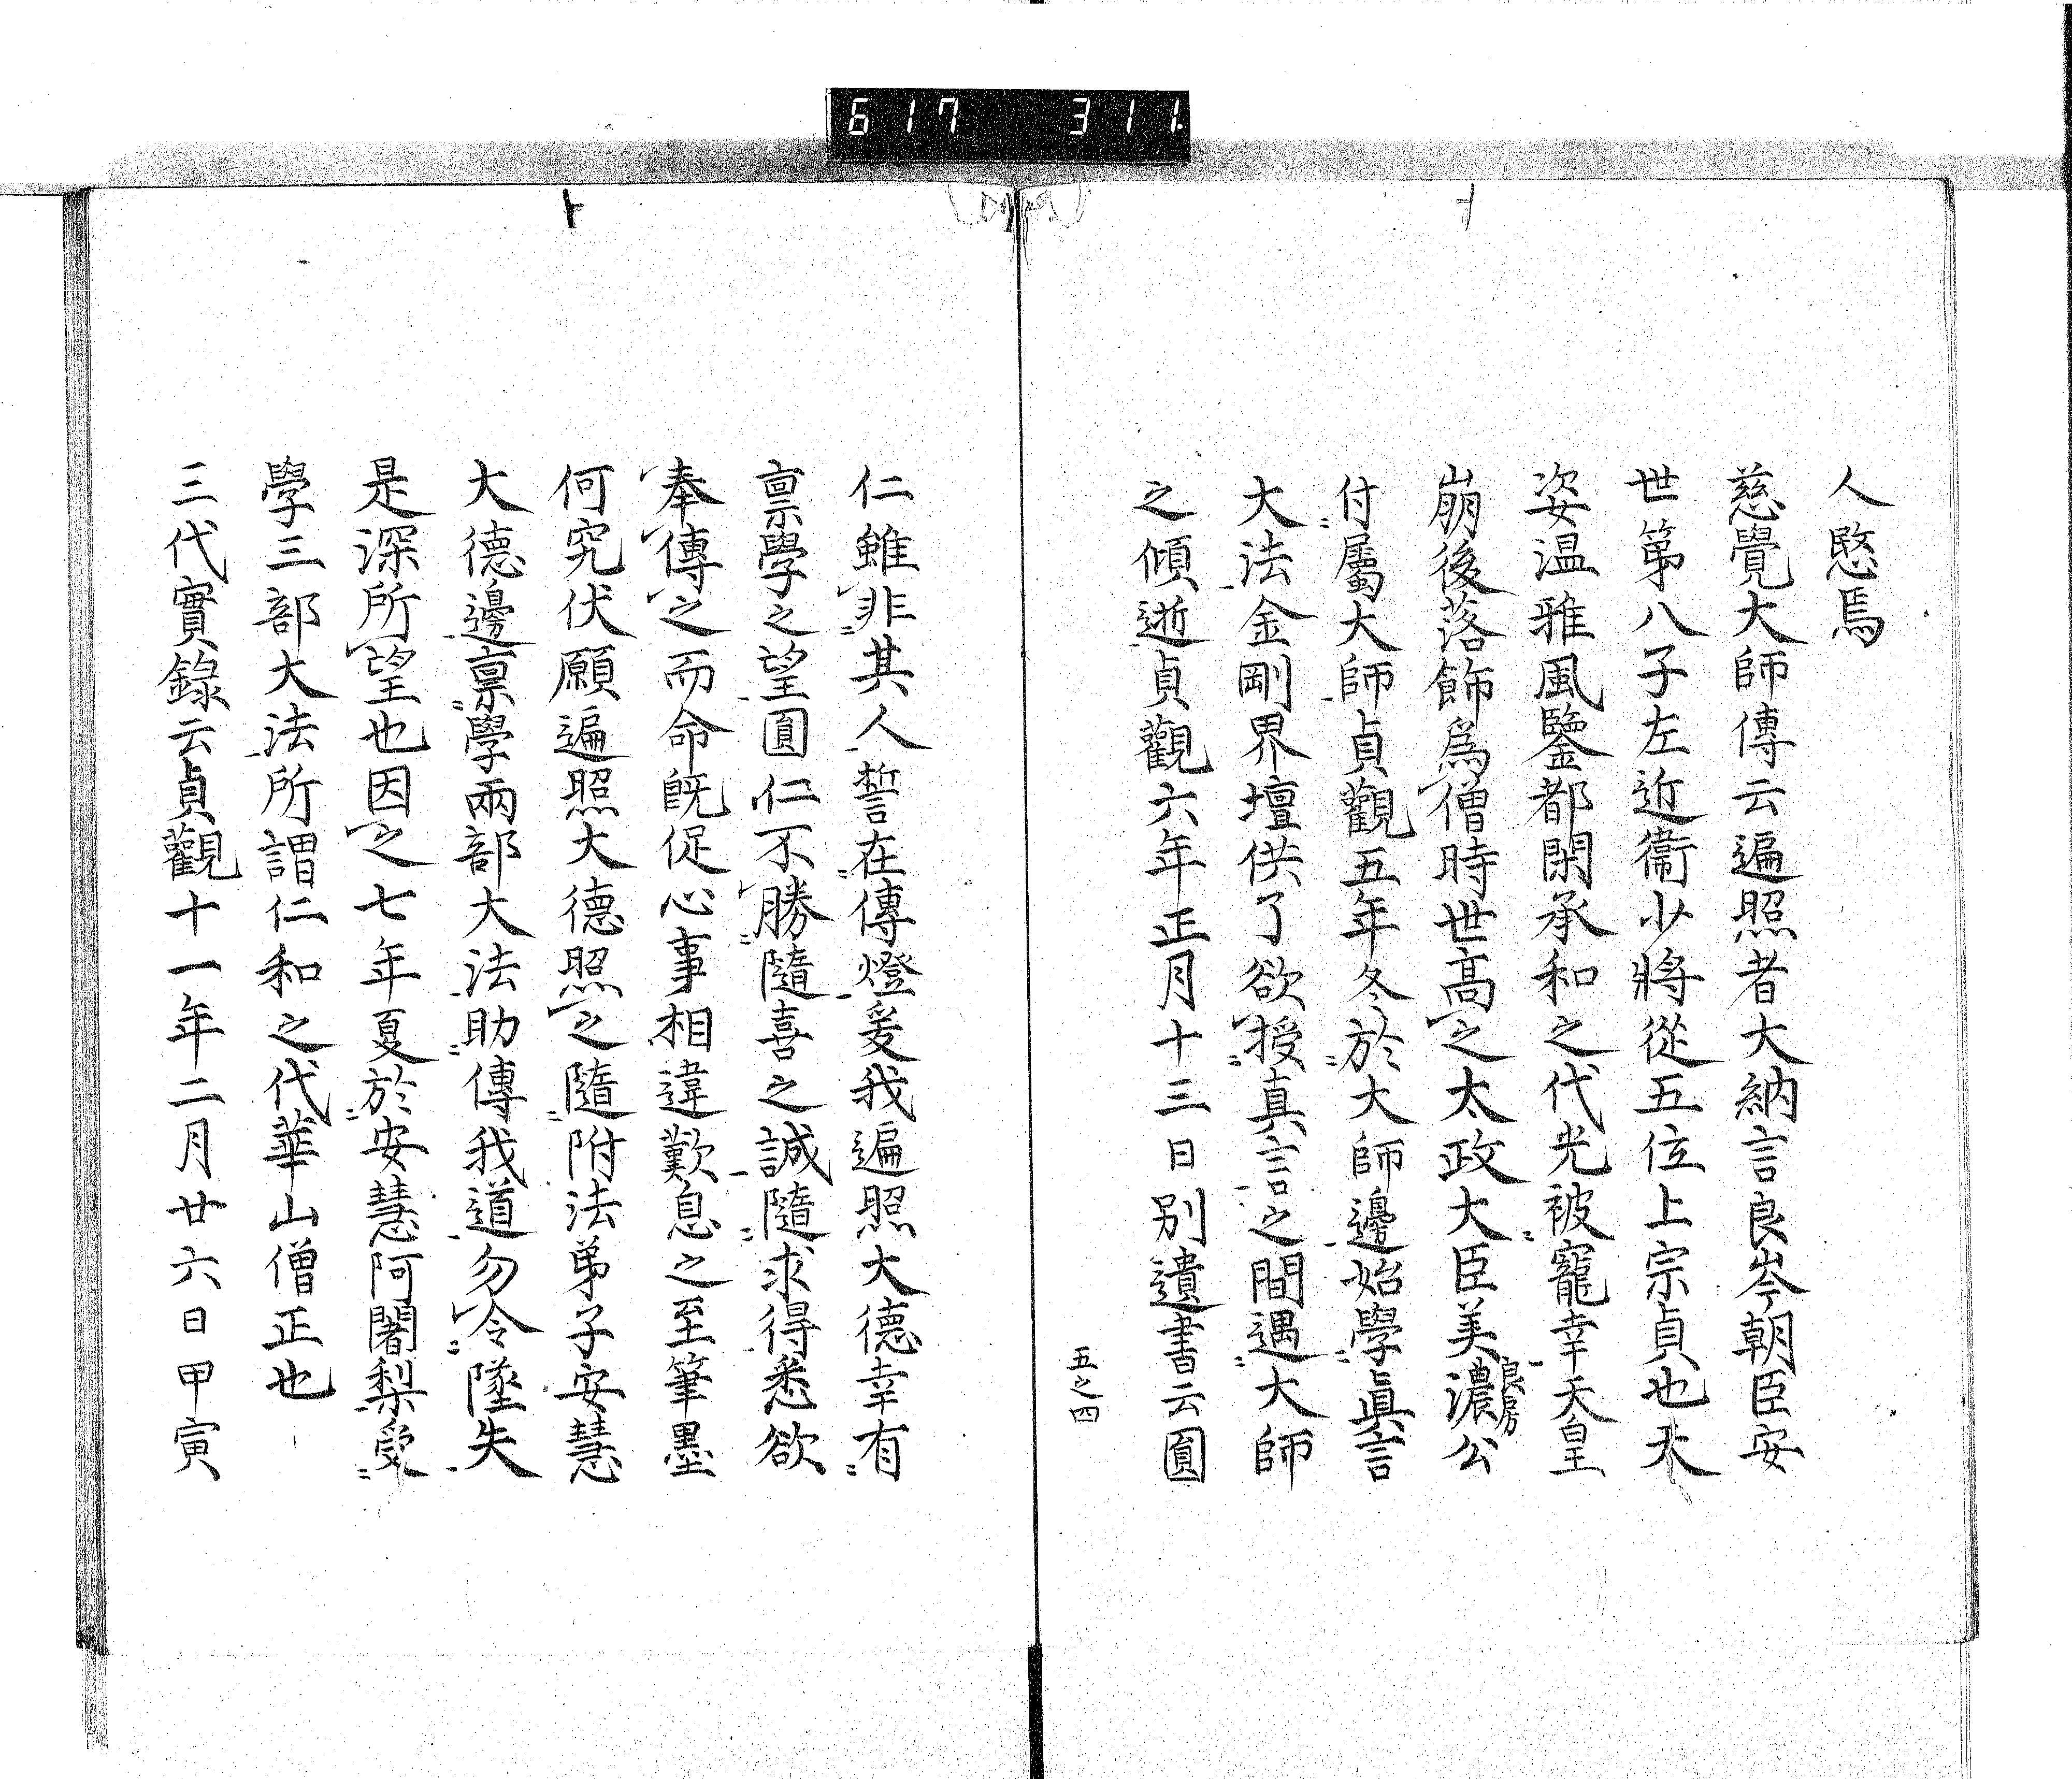 617 311
人愍焉
慈覺大師傳云遍照者大納言良岑朝臣安
世第八子左近衞少將從五位上宗貞也天
姿温雅風鑒都閑承和之代光被寵幸天皇
崩後落飾爲僧時世高之太政大臣美濃公
良房
付屬大師貞觀五年冬於大師邊始學眞言
大法金剛界壇供了欲授真言之間遇大師
之傾逝貞觀六年正月十三日別遺書云圓
五之四
仁雖非其人誓在傳燈爰我遍照大德幸有
稟學之望圓仁不勝隨喜之誠隨求得悉欲
奉傳之而命既促心事相違歎息之至筆墨
何究伏願遍照大德照之隨附法弟子安慧
大德邊稟學兩部大法助傳我道勿令墜失
是深所望也因之七年夏於安慧阿闍梨受
學三部大法所謂仁和之代華山僧正也
三代實錄云貞觀十一年二月廿六日甲寅